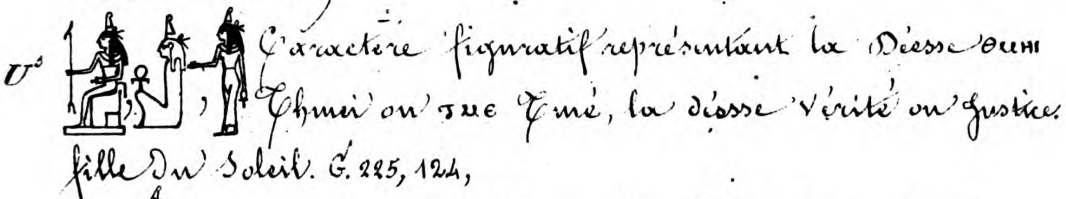 U³ , , Caractère figuratif représentant la Déesse ⲑⲙⲏⲓ
Thmei ou ⲧⲙⲉ Tmé, la déesse Vérité ou Justice.
fille du Soleil. G. 225, 124,